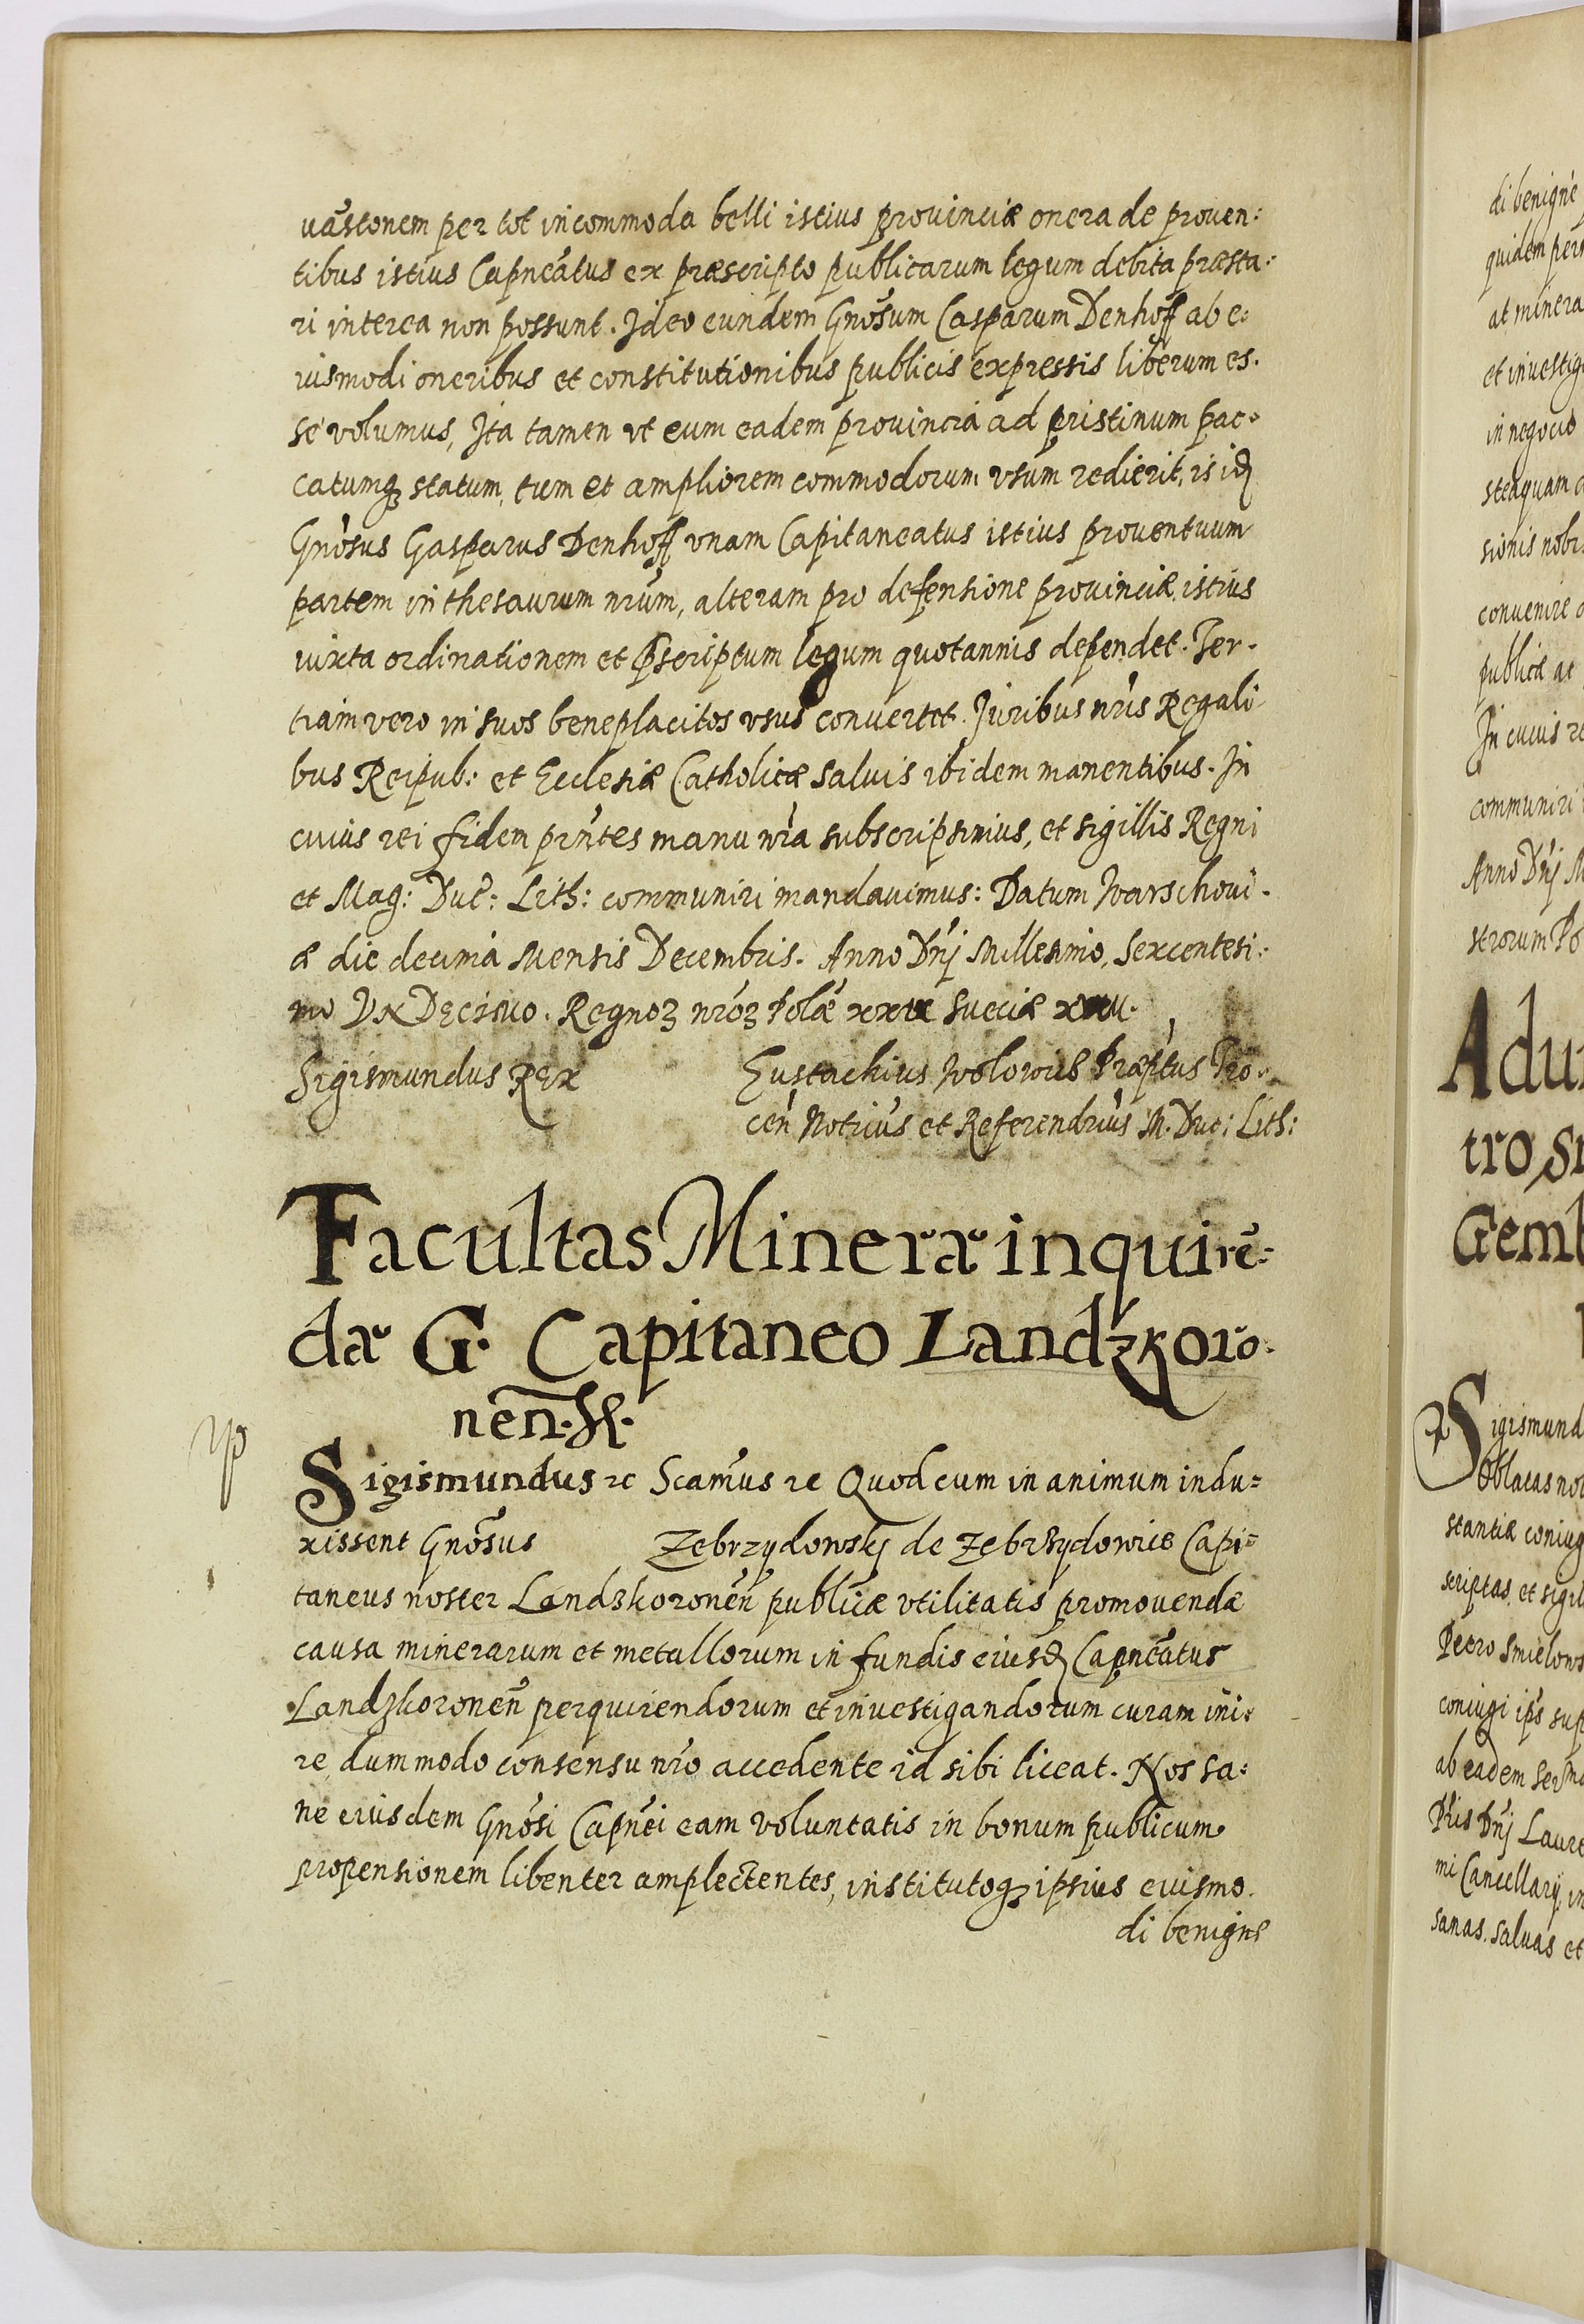 vastonem per tot incommoda belli istius provinciæ onera de proven:
tibus istius Capneatus ex præscripto publicarum legum debita præsta:
ri interea non possunt. Ideo eundem Gnosum Casparum Denhoff ab e:
iusmodi oneribus et constitutionibus publicis expressis liberum es.
se volumus, Ita tamen vt cum eadem provincia ad pristinum pac:
catumqꝫ statum, tum et ampliorem commodorum vsum redierit, is id
Gnosus Gasparus Denhoff vnam Capitaneatus istius proventuum
partem in thesaurum nrum, alteram pro defensione provinciæ istius
iuxta ordinationem et pscriptum legum quotannis dependet. Ter.
tiam vero in suos beneplacitos vsus convertet. Juribus nris Regali
bus Reipub: et Ecclesiæ Catholicæ salvis ibidem manentibus. In
cuius rei fidem prntes manu nra subscripsimus, et sigillis Regni
et Mag: Duc: Lith: communiri mandavimus: Datum Warschovi.
æ die decima Mensis Decembris. Anno Dnj Millesimo, Sexcentesi:
mo VnDecimo. Regnoꝝ nroꝝ Polæ Sueciæ
Sigismundus Rex
Eustachius Wolowic Præptus Tro.
cen Notrius et Referendrius M. Duc: Lith:
Facultas Mineræ inquirē:
dæ G. Capitaneo Landzkoro.
nen.
Sigismundus rc Scamus rc Quod cum in animum indu:
xissent Gnosus Zebrzydowskj de Zebrzydowice Capi:
taneus noster Landzkoronen publicæ vtilitatis promovendæ
causa minerarum et metallorum in fundis eiusd Capneatus
Landzkoronen perquirendorum et investigandorum curam ini:
re, dummodo consensu nro accedente id sibi liceat. Nos sa:
ne eiusdem Gnosi Capnei eam voluntatis in bonum publicum
propensionem libenter amplectentes, institutoqꝫ ipsius eiusmo.
di benigne
di benigne
quidem
at minera
et investig
in negocio
steaquam
sionis nobi
convenire
publicæ ac
In cuius re
communiri
Anno Dnj M
Adu
tro
Gem
Sigismund
Oblatas no
stantiæ coniug
scriptas, et sigil
Petro Smielows
coniugi ips sup
ab eadem
Pris Dnj Laure
mi Cancellarij, in
sanas, salvas et